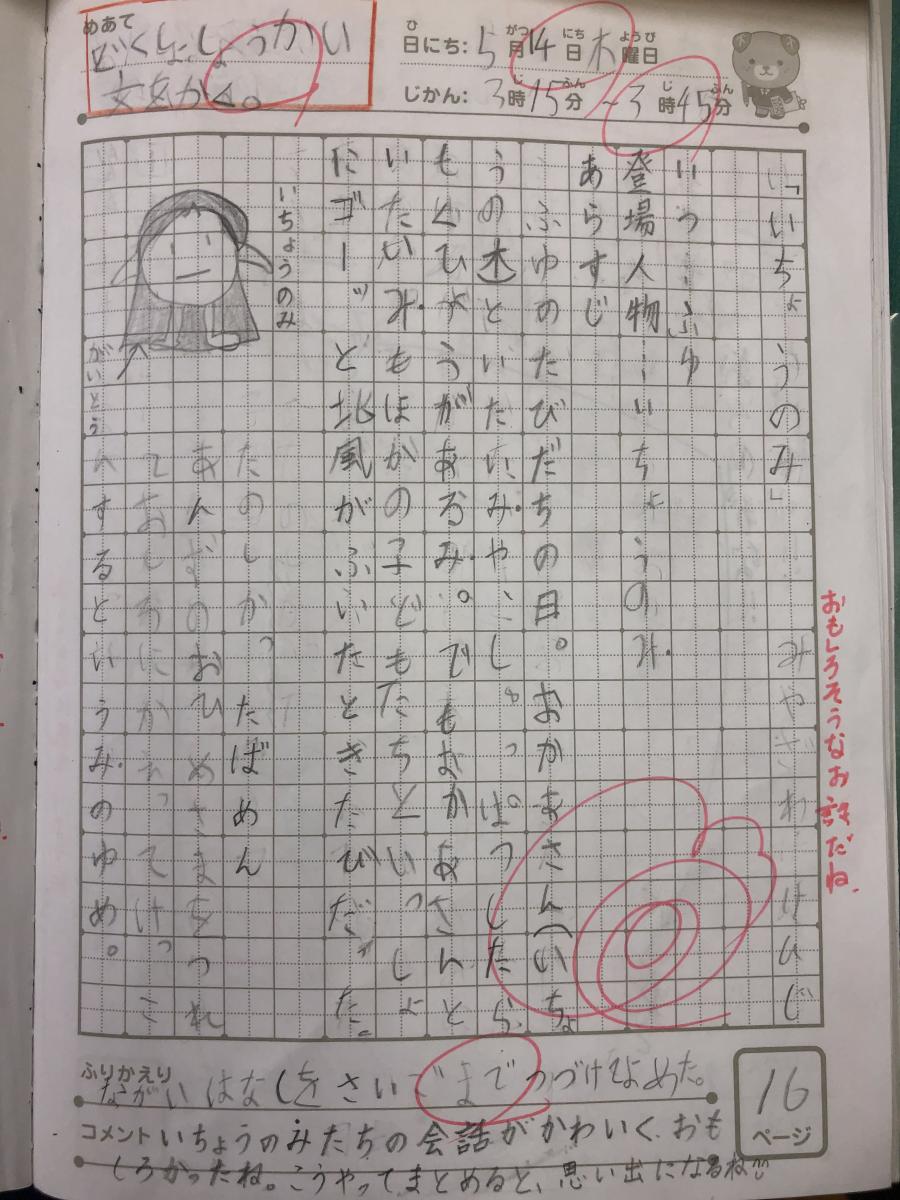 めあて
どくしょしょうかい
文をかく。
日にち:5月14日木曜日
じかん:3時15分~3時45分
「いちょうのみ」 みやざわけんじ
いつ…ふゆ
登場人物…いちょうのみ
あらすじ
ふゆのたびだちの日。おかあさん(いちょ
うの木といたいみやこし。っぱつしたら
もくひょうがあるみ。でもおかあさんと
いたいみもほかの子どもたちといっしょ
にゴーッと北風がふいたときたびだった。
いちょうのみ
たのしかったばめん
あんずのおひめさまをつれ
ておしろにかえってけっこ
んするといううみのゆめ。
がいとう
おもしろそうなお話だね。
ふりかえり
ながいはなしをさいごまでつづけてよめた。
コメント いちょうのみたちの会話がかわいく、おも
しろかったね。こうやってまとめると、思い出になるね
16
ページ